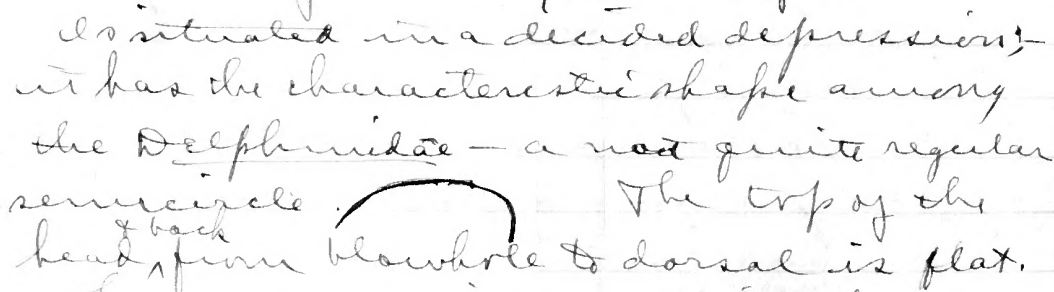 is situated in a decided depression; -
it has the characteristic shape among
the Delphinidae - a not quite regular
semicircle. The top of the
& back
head ^ from blowhole to dorsal is flat.